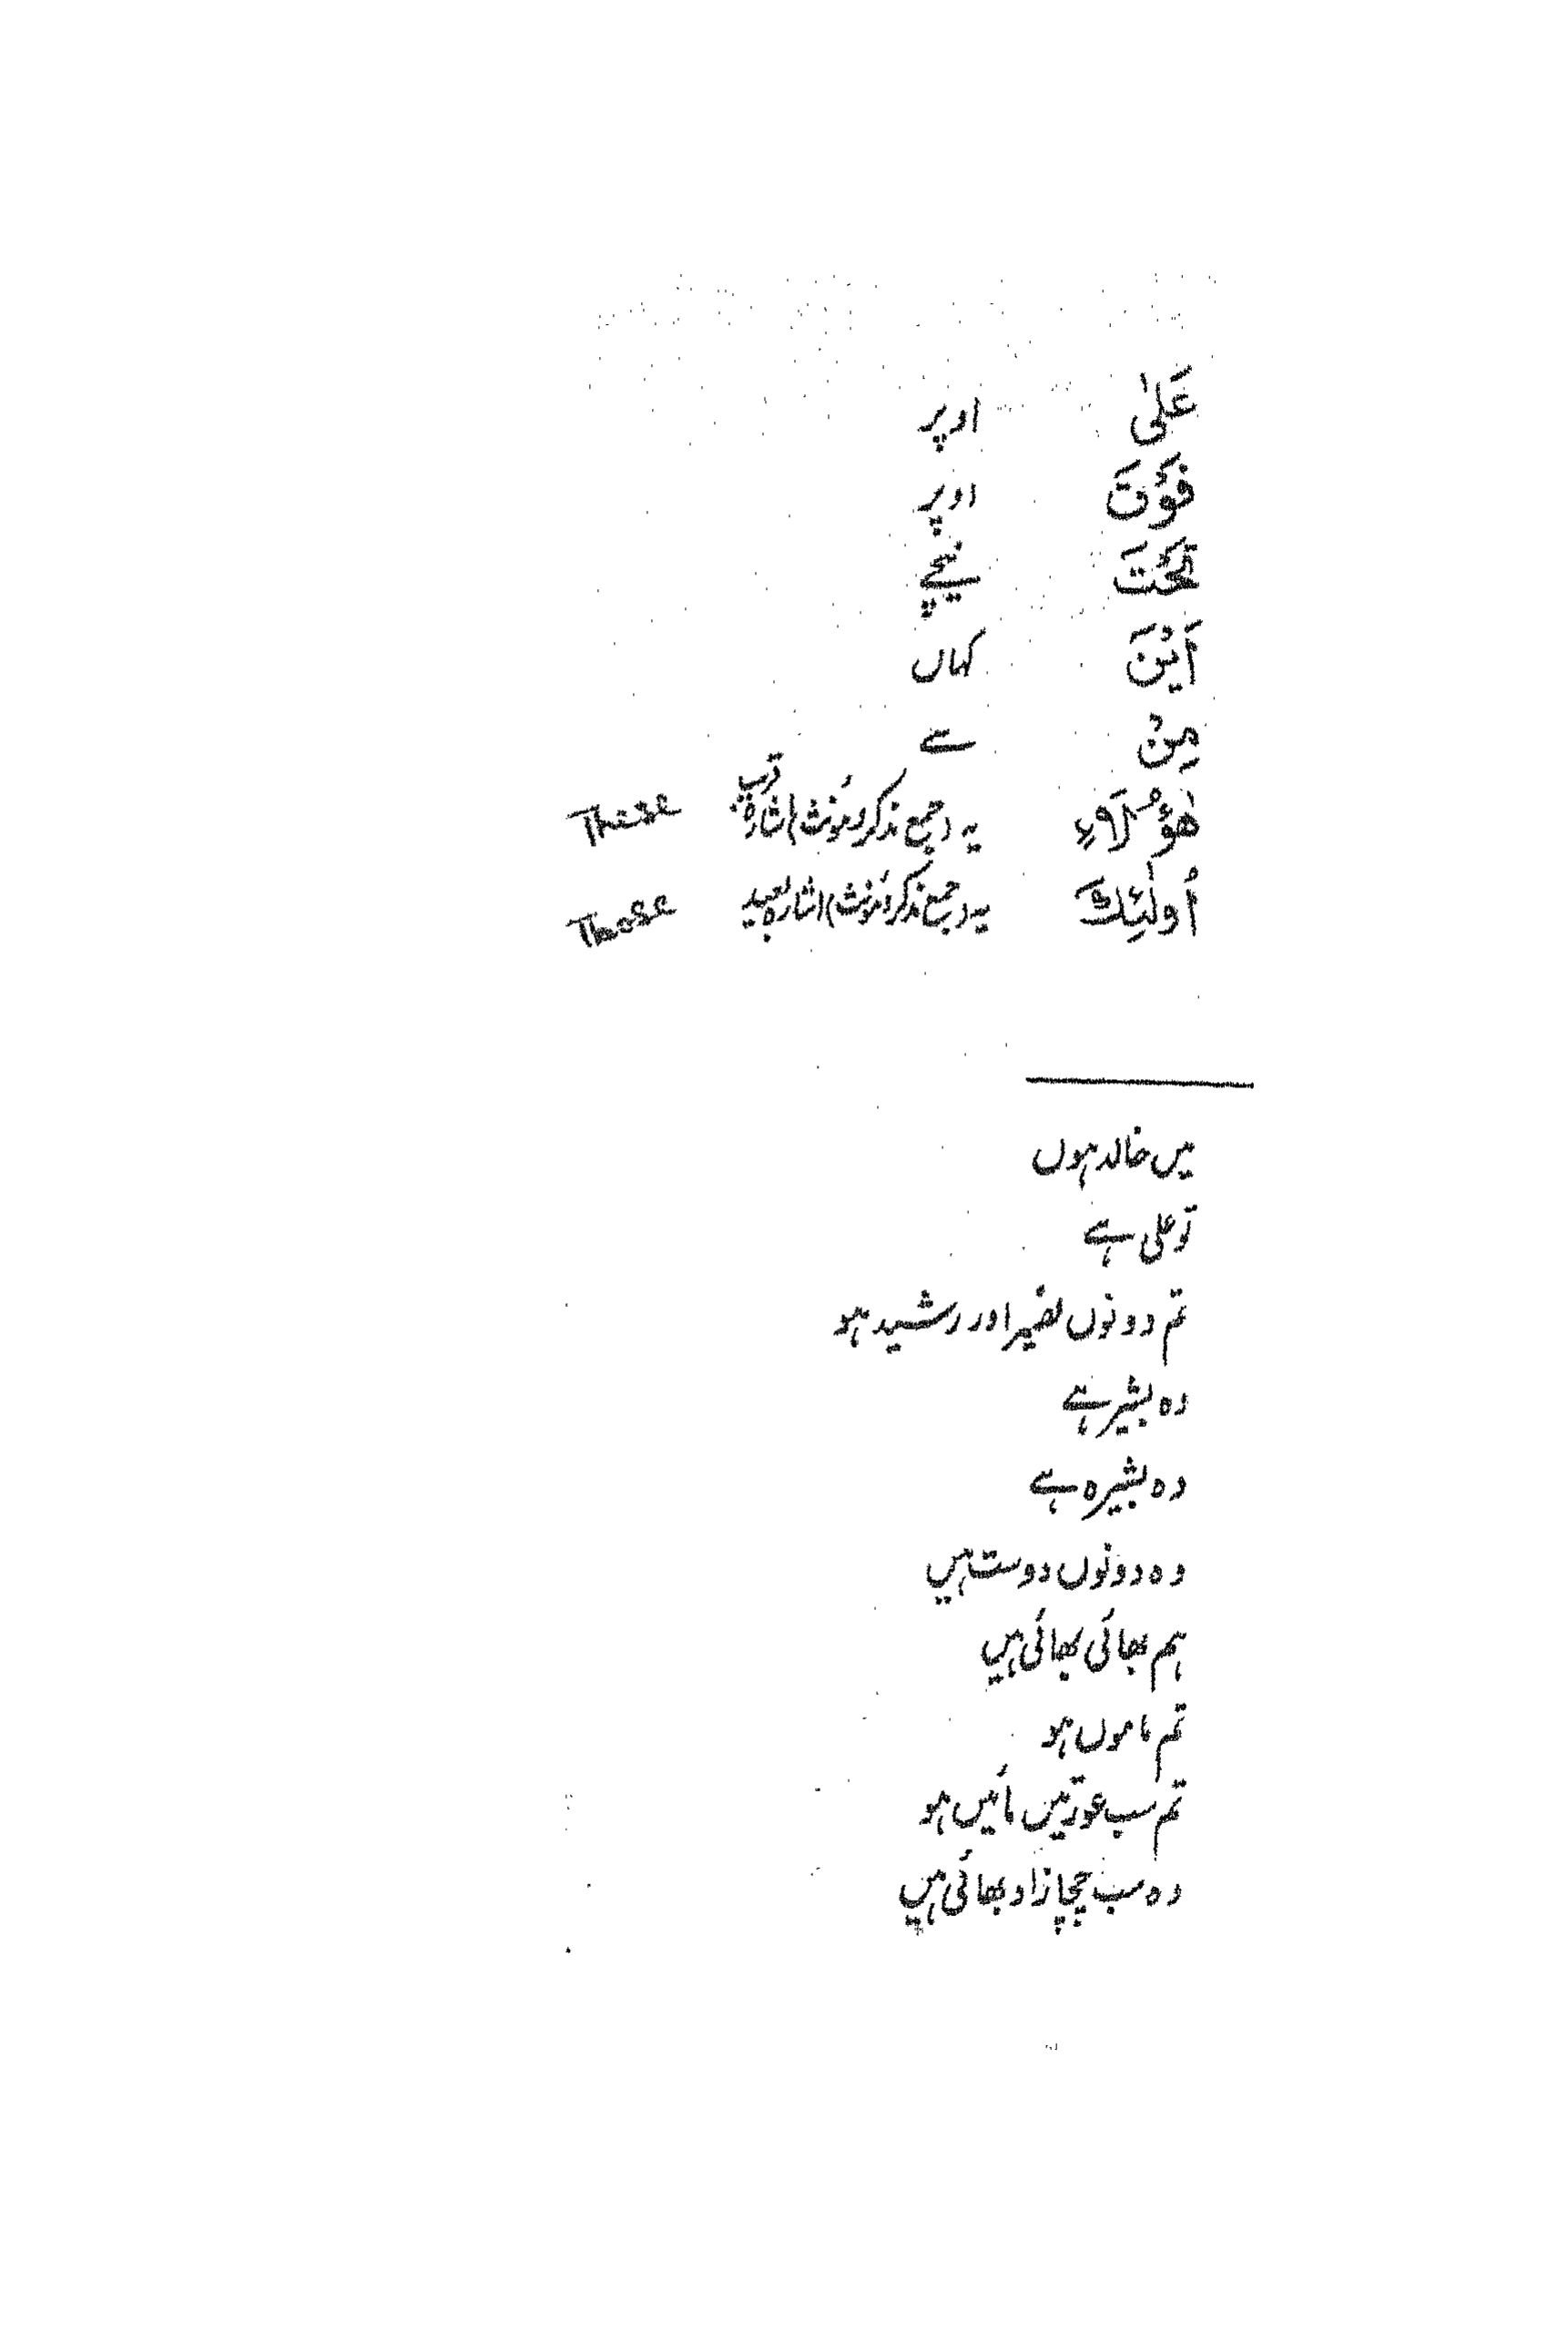 عَلٰی اوپر
فَوْقَ اوپر
تَحْتَ نیچے
أَيْنَ کہاں
مِنْ سے
هٰؤُلَاءِ یہ (جمع مذکر و مؤنث) اشارہ قریب These
أُولٰئِكَ یہ (جمع مذکر و مؤنث) اشارہ بعید Those
میں خالد ہوں
تو علی ہے
تم دونوں نصیر اور رشید ہو
وہ بشیر ہے
وہ بشیرہ ہے
وہ دونوں دوست ہیں
ہم بھائی بھائی ہیں
تم ماموں ہو
تم سب عورتیں مائیں ہو
وہ سب چچا زاد بھائی ہیں